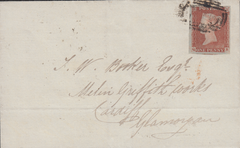 T. W. Booker Esqr.
Melin Griffith Works
Cardiff
Glamorgan